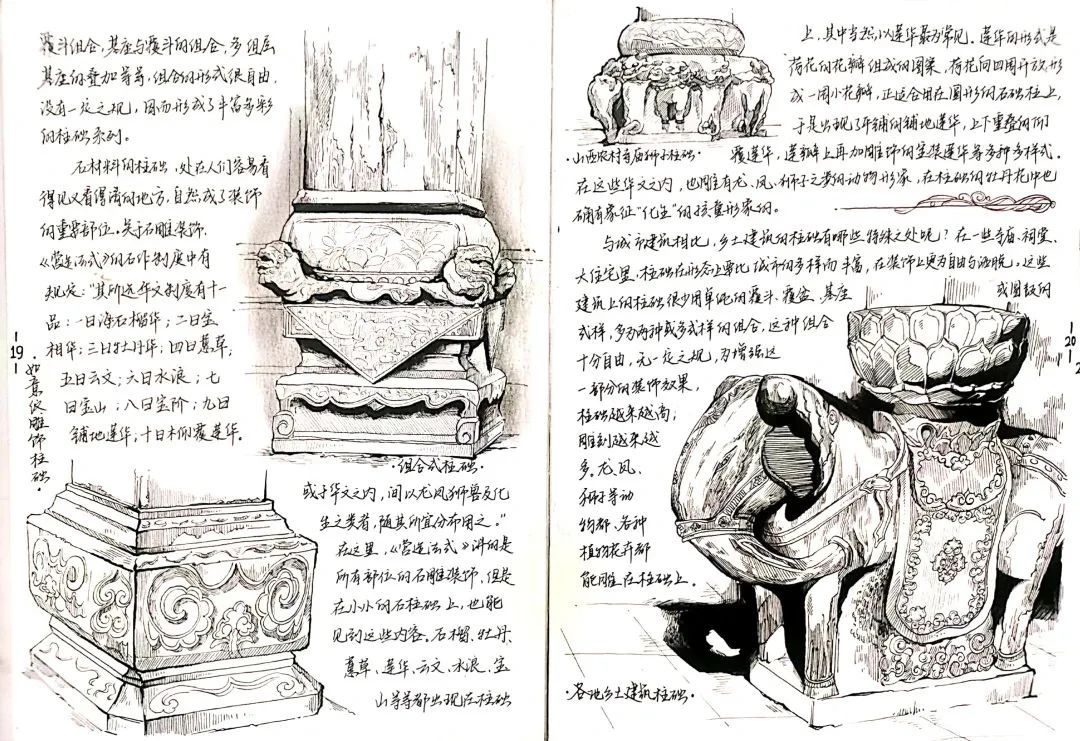 覆斗组合,基座与覆斗的组合,多组层
基座的叠加等等,组合的形式很自由,
没有一定之规,因而形成了丰富多彩
的柱础系列。
石材料的柱础,处在人们容易看
得见又看得清的地方,自然成了装饰
的重要部位。关于石雕装饰,
《营造法式》的石作制度中有
规定:“其所造华文制度有十一
品:一曰海石榴华;二曰宝
相华;三曰牡丹华;四曰蕙草;
五曰云文;六曰水浪;七
曰宝山;八曰宝阶;九曰
铺地莲华,十曰仰覆莲华。
-19-
·如意纹雕饰柱础·
·组合式柱础·
或于华文之内,间以龙凤狮兽及化
生之类者,随其所宜分布用之。”
在这里,《营造法式》讲的是
所有部位的石雕装饰,但是
在小小的石柱础上,也能
见到这些内容。石榴、牡丹、
蕙草、莲华、云文、水浪、宝
山等等都出现在柱础
上,其中当然以莲华最为常见。莲华的形式是
荷花的花瓣组成的图案,荷花向四周开放形
成一周小花瓣,正适合用在圆形的石础柱上,
于是出现了平铺的铺地莲华,上下重叠的仰
覆莲华,莲瓣上再加雕饰的宝装莲华等多种多样式。
·山西农村寺庙狮子柱础·
在这些华文之内,也雕有龙、凤、狮子之类的动物形象,在柱础的牡丹花中也
确有象征“化生”的孩童形象的。
与城市建筑相比,乡土建筑的柱础有哪些特殊之处呢?在一些寺庙、祠堂、
大住宅里,柱础在形态上要比城市的多样而丰富,在装饰上更为自由与活脱,这些
建筑上的柱础很少用单纯的覆斗、覆盆、基座
或圆鼓的
式样,多为两种或多式样的组合,这种组合
十分自由,无一定之规,为增强这
一部分的装饰效果,
柱础越来越高;
雕刻越来越
多。龙、凤、
狮子等动
物都、各种
植物花卉都
能雕在柱础上。
-20-
·各地乡土建筑柱础·